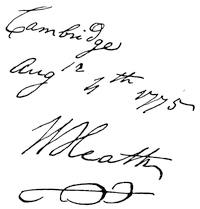 Cambridge
Aug 4th 1775
W Heath